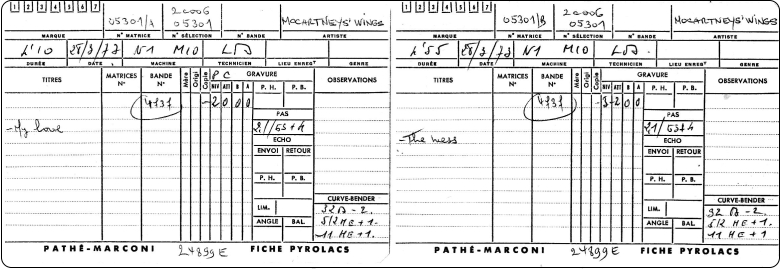 1 2 3 4 5 6 7
05301/A
2C006
05301
McCARTNEYS' WINGS
MARQUE N° MATRICE N° SÉLECTION N° BANDE ARTISTE
4'10 28/3/73 N1 M10
DURÉE DATE MACHINE TECHNICIEN LIEU ENREGT GENRE
TITRES MATRICES N° BANDE N° Mère Origi Copie P C GRAVURE OBSERVATIONS
NIV ATT B A P. H. P. B.
4731 -2 0 0 0
PAS
- My love
ECHO
ENVOI RETOUR
P. H. P. B.
CURVE-BENDER
LIM.
32 A - 2.
ANGLE BAL.
5/2 HE + 1.
11 HE + 1.
PATHÉ-MARCONI 24899E FICHE PYROLACS
1 2 3 4 5 6 7
05301/B
2C006
05301
McCARTNEYS' WINGS
MARQUE N° MATRICE N° SÉLECTION N° BANDE ARTISTE
4'55 28/3/73 N1 M10
DURÉE DATE MACHINE TECHNICIEN LIEU ENREGT GENRE
TITRES MATRICES N° BANDE N° Mère Origi Copie GRAVURE OBSERVATIONS
NIV ATT B A P. H. P. B.
4731 -3 -2 0 0
PAS
- The mess
ECHO
ENVOI RETOUR
P. H. P. B.
CURVE-BENDER
LIM.
32 A - 2.
ANGLE BAL.
5/2 HE + 1.
11 HE + 1.
PATHÉ-MARCONI 24899E FICHE PYROLACS